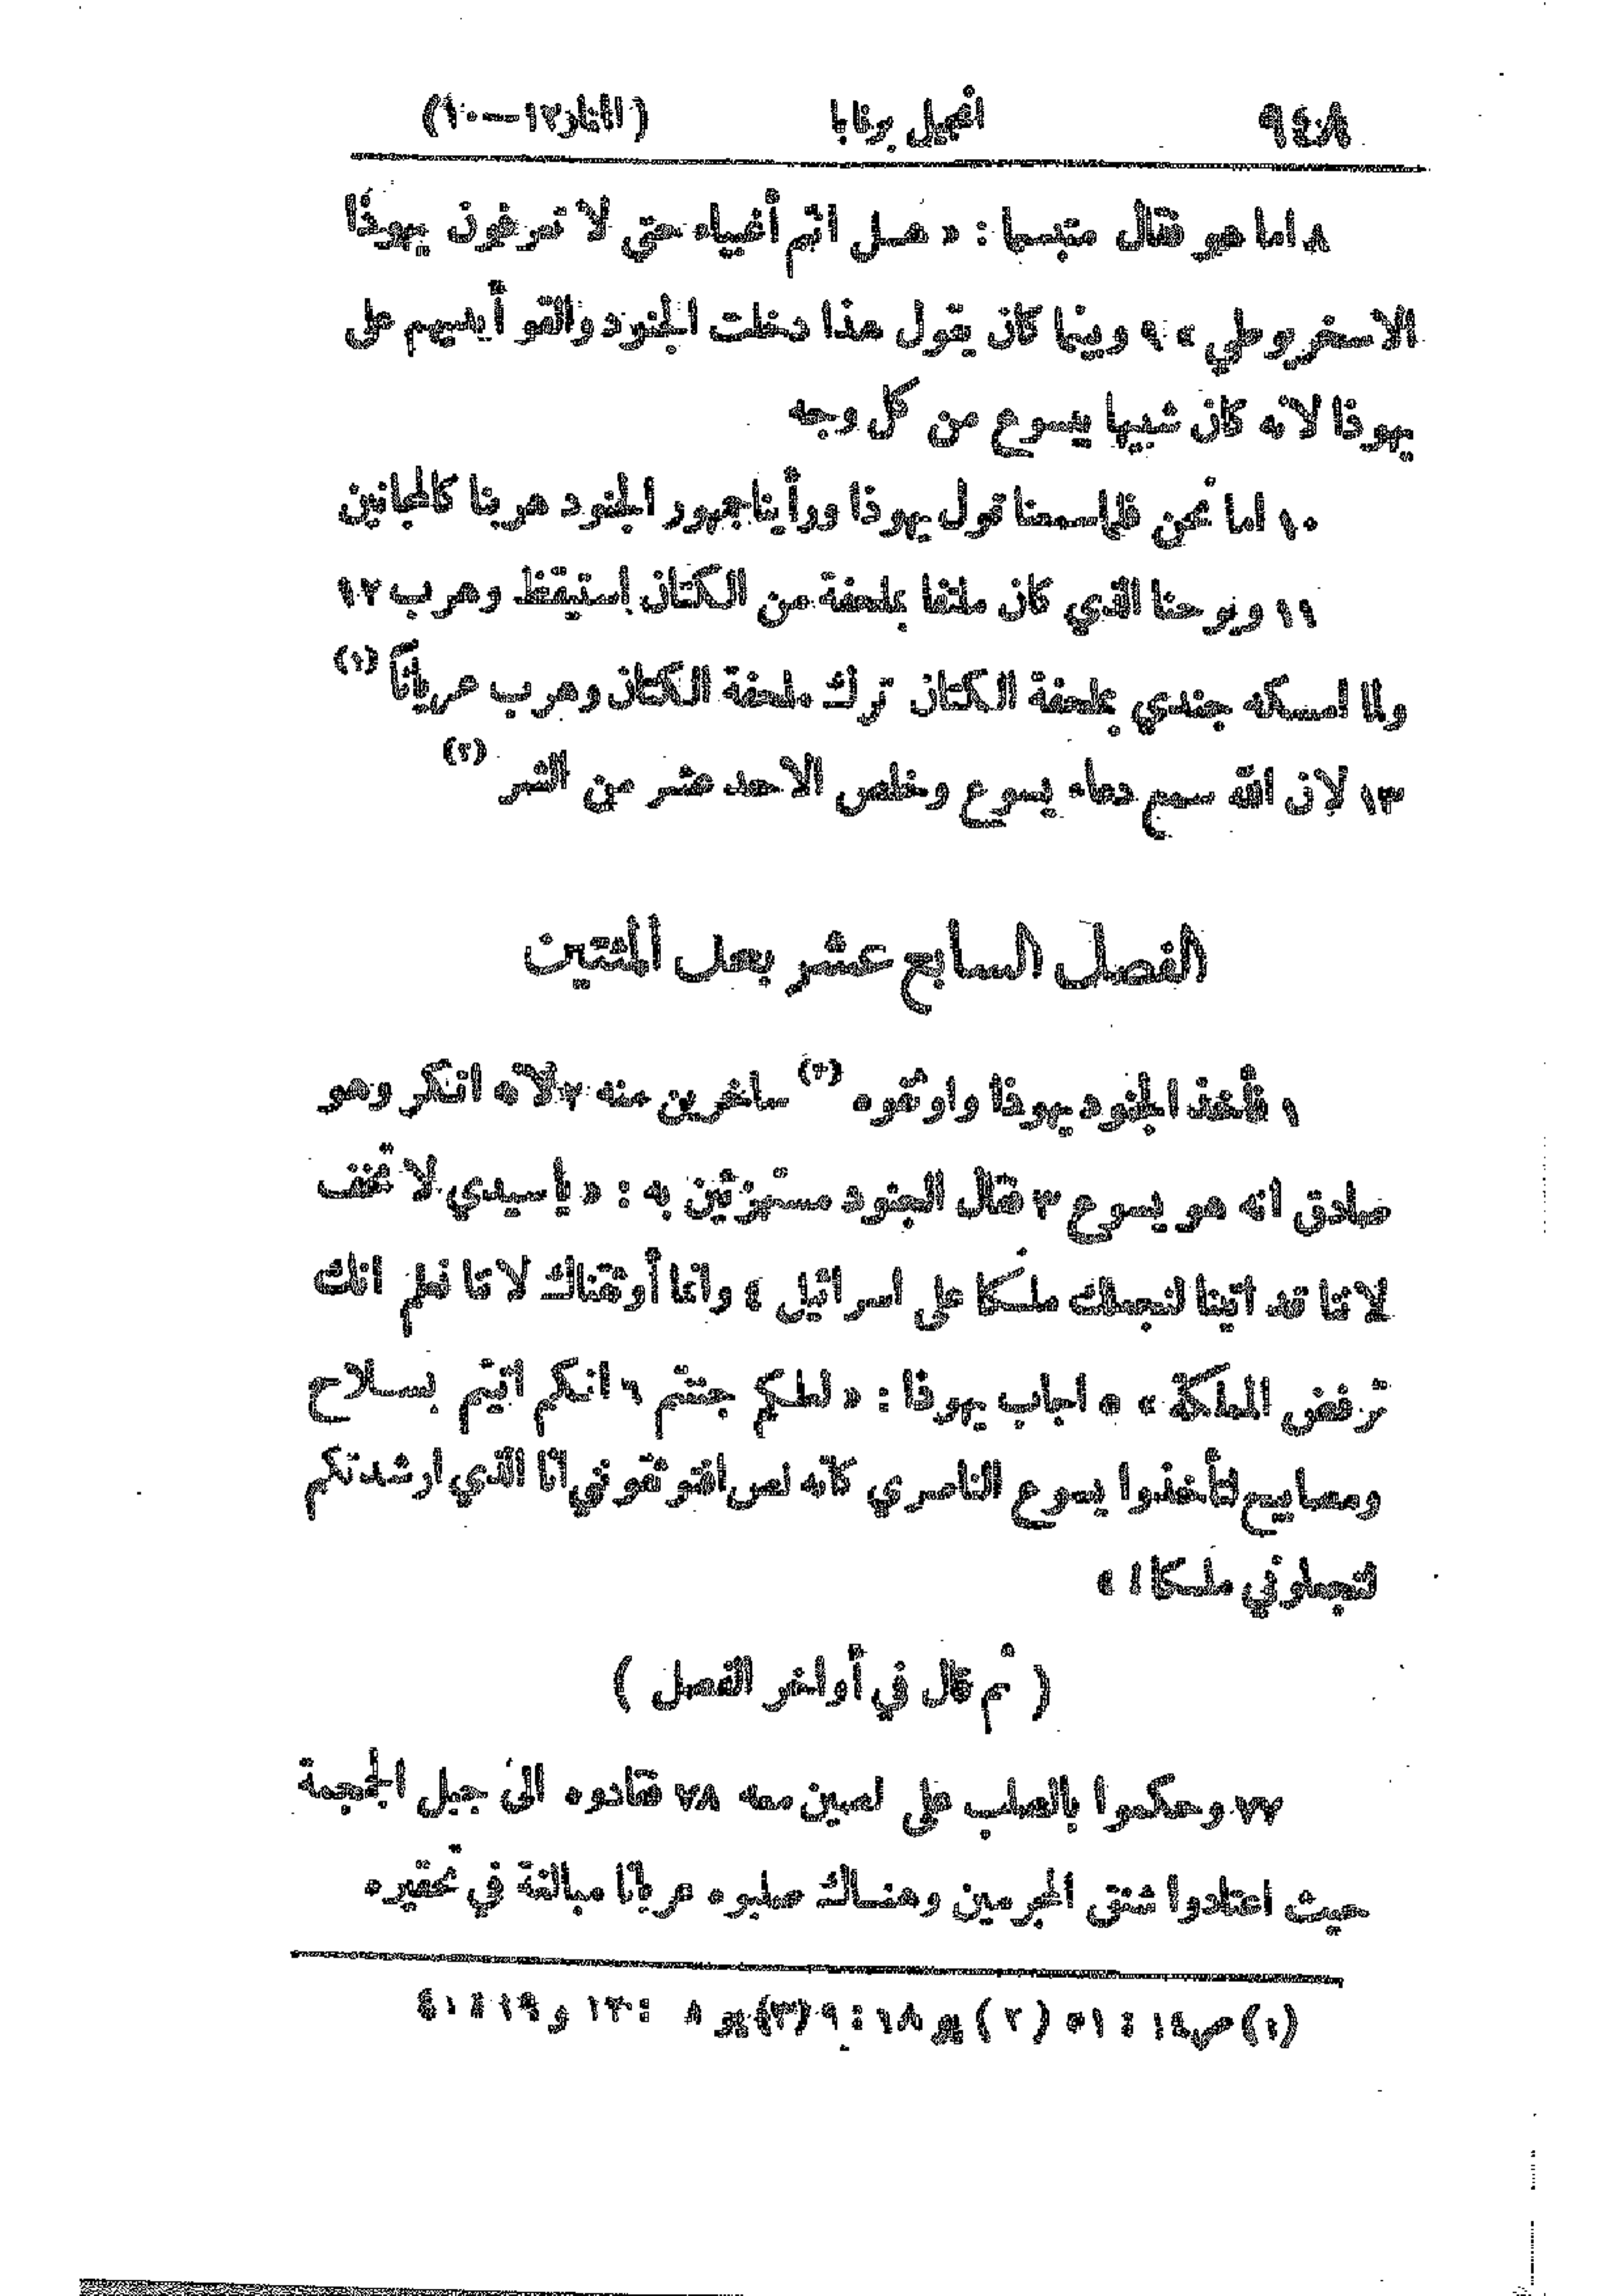 ٩٤٨ انجيل برنابا (المنار ١٢—١٠)
٨ اما هو فقال متبسما : « هـل انتم أغبياء حتى لا تعرفون يهوذا
الاسخريوطي » ٩ وبينما كان يقول هذا دخلت الجنود والقوا أيديهم على
يهوذا لانه كان شبيها بيسوع من كل وجه
١٠ اما نحن فلما سمعنا قول يهوذا ورأينا جمهور الجنود هربنا كالمجانين
١١ ويوحنا الذي كان ملتفا بملحفة من الكتان استيقظ وهرب ١٢
ولما امسكه جندي بملحفة الكتان ترك ملحفة الكتان وهرب عرياناً (١)
١٣ لان الله سمع دعاء يسوع وخلص الاحد عشر من الشر (٢)
الفصل السابع عشر بعد المئتين
١ فأخذ الجنود يهوذا واوثقوه (٣) ساخرين منه ٢ لانه انكر وهو
صادق انه هو يسوع ٣ فقال الجنود مستهزئين به : « يا سيدي لا تخف
لاننا قد اتينا لنجعلك ملكا على اسرائيل ٤ وانما أوثقناك لاننا نعلم انك
ترفض المملكة » ٥ اجاب يهوذا : « لعلكم جننتم ٦ انكم اتيتم بسـلاح
ومصابيح لتأخذوا يسوع الناصري كأنه لص افتوثقونني أنا الذي ارشدتكم
لتجعلوني ملكا ! »
( ثم قال في أواخر الفصل )
٧٧ وحكموا بالصلب على لصين معه ٧٨ فقادوه الى جبل الجمجمة
حيث اعتادوا شنق المجرمين وهنـاك صلبوه عريانا مبالغة في تحقيره
(١) مر ١٤ : ٥١ (٢) يو ١٨ : ٩ (٣) يو ٨ : ١٢ و ١٩ : ٤٠١